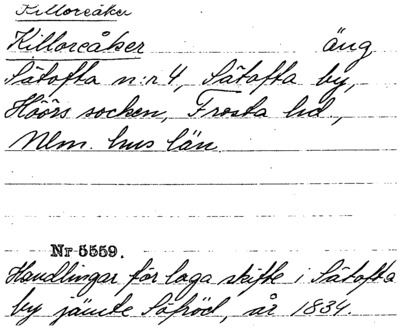 Killoreåker
Killoreåker äng
Sätofta n:r 4, Sätofta by,
Höörs socken, Frosta hd.,
Mlm. hus län.
Nr 5559.
Handlingar för laga skifte i Sätofta
by jämte Säfröd, år 1834.